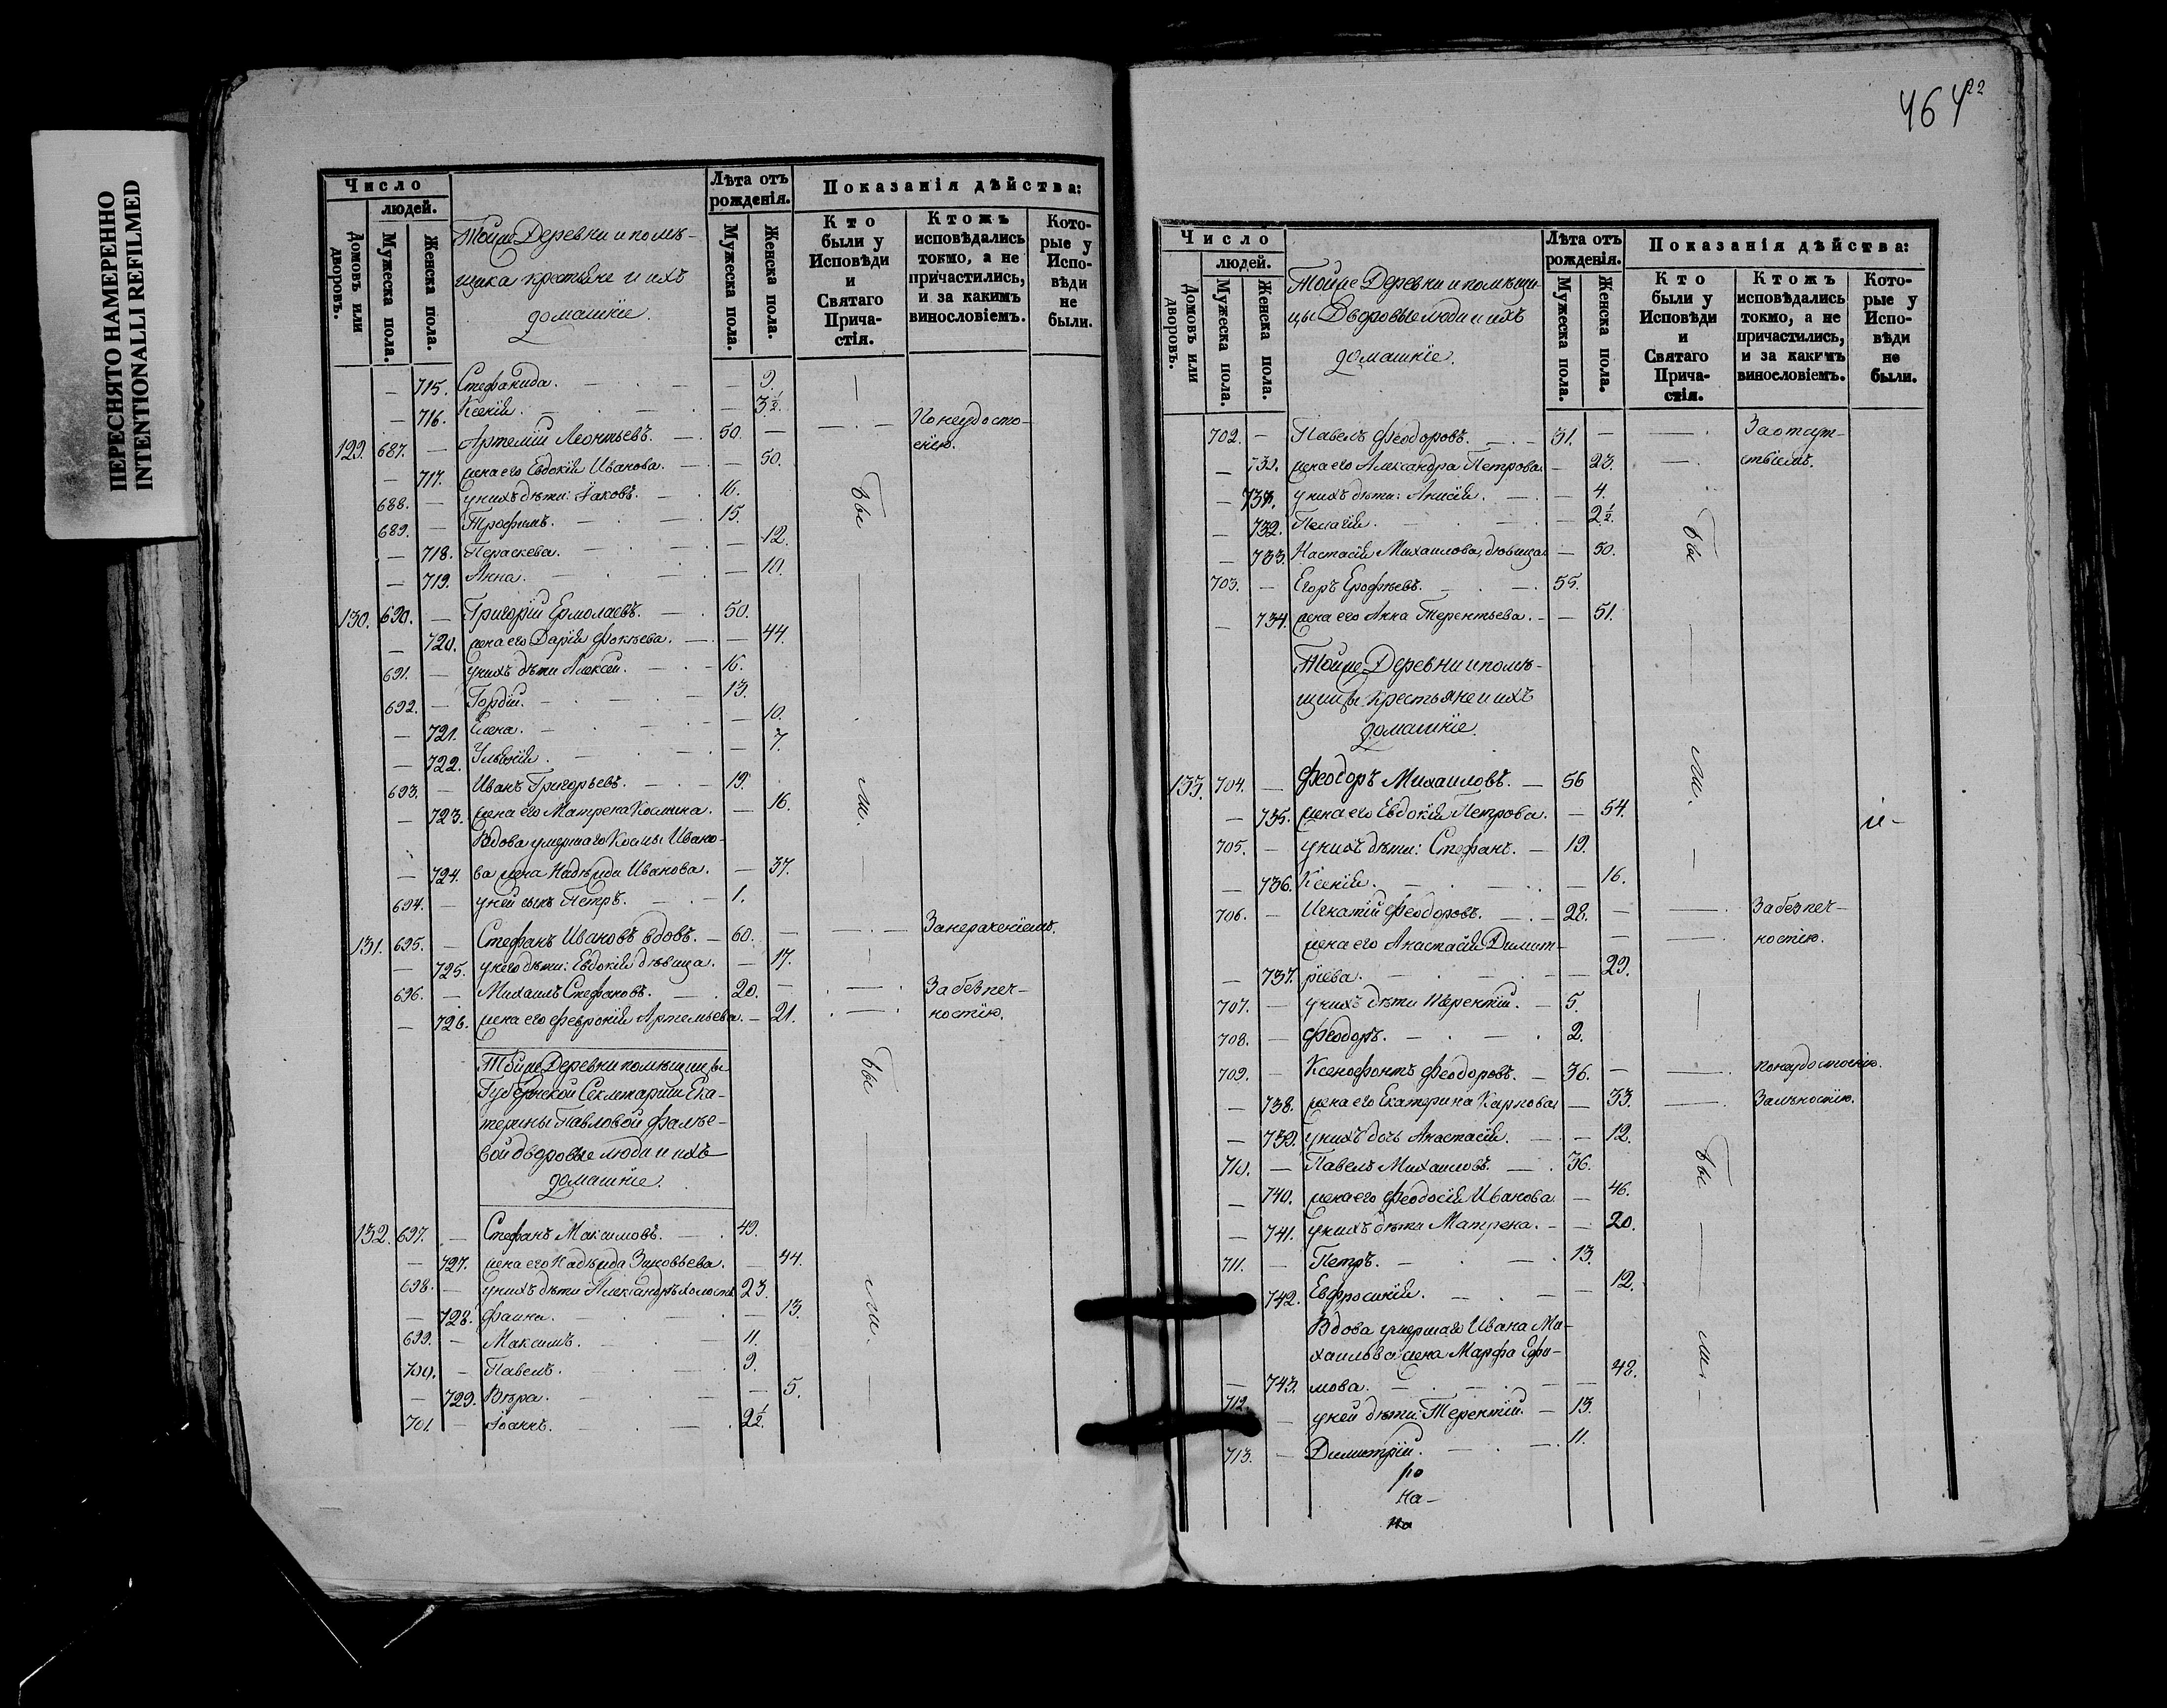 ПЕРЕСНЯТО НАМЕРЕННО
INTENTIONALLI REFILMED
Число
людей.
Домовъ или дворовъ.
Мужеска пола.
Женска пола.
Тойже Деревни и помѣ-
щика крестьяне и ихъ
домашніе.
Лѣта отъ рожденія.
Мужеска пола.
Женска пола.
Показанія дѣйства:
Кто были у Исповѣди и Святаго Прича-стія.
Ктожъ исповѣдались токмо, а не причастились, и за какимъ винословіемъ.
Кото-рые у Испо-вѣди не были.
— 715. Стефанида. — 9.
— 716. Ксенія. — 3 1/2.
129. 687. — Артемій Леонтьевъ. 50. — По неудосто-
енію.
— 717. жена его Евдокія Иванова. — 50.
688. — у нихъ дѣти: Іаковъ. 16.
Бы
689. — Трофимъ. 15.
— 718. Параскева. — 12.
— 719. Анна. — 10.
130. 690. — Григорій Ермолаевъ. 50.
— 720. жена его Дарія Фокѣева. — 44.
691. — у нихъ дѣти Алексѣй. 16.
692. — Гордій. 13.
— 721. Елена. — 10.
— 722. Уліянія. — 7.
693. — Иванъ Григорьевъ. 19.
ли.
— 723. жена его Матрена Косьмина. — 16.
Вдова умершаго Косьмы Ивано-
— 724. ва жена Надежда Иванова. — 37.
694. — у ней сынъ Петръ. 1.
131. 695. — Стефанъ Ивановъ вдовъ. 60. — За нераченіемъ.
— 725. у него дѣти: Евдокія дѣвица. — 17.
696. — Михаилъ Стефановъ. 20. — За безпеч-
— 726. жена его Февронія Артемьева. — 21. ностію.
Тойже Деревни помѣщицы
Губернской Секлетарши Ека-
терины Павловой Фалѣе-
вой дворовые люди и ихъ
домашніе.
Бы
132. 697. — Стефанъ Максимовъ. 49.
— 727. жена его Надежда Зиновьева. — 44.
698. — у нихъ дѣти Александръ холостъ 23.
— 728. Фаина. — 13.
ли.
699. — Максимъ. 11.
700. — Павелъ. 9.
— 729. Вѣра. — 5.
701. — Іоаннъ. 2 1/2.
464
22
Число
людей.
Домовъ или дворовъ.
Мужеска пола.
Женска пола.
Тойже Деревни и помѣщи-
цы Дворовые люди и ихъ
домашніе.
Лѣта отъ рожденія.
Мужеска пола.
Женска пола.
Показанія дѣйства:
Кто были у Исповѣди и Святаго Прича-стія.
Ктожъ исповѣдались токмо, а не причастились, и за какимъ винословіемъ.
Кото-рые у Испо-вѣди не были.
702. — Павелъ Феодоровъ. 31. — За отсут-
— 730. жена его Александра Петрова. — 23. ствіемъ.
— 731. у нихъ дѣти: Анисія. — 4.
— 732. Пелагія. — 2 1/2.
Бы
— 733. Настасія Михаилова, дѣвица. — 50.
703. — Егоръ Ерофѣевъ. 55.
— 734. жена его Анна Терентьева. — 51.
Тойже Деревни и помѣ-
щицы крестьяне и ихъ
домашніе.
ли.
133. 704. — Феодоръ Михаиловъ. 56
— 735. жена его Евдокія Петрова. — 54.
705. — у нихъ дѣти: Стефанъ. 19.
— 736. Ксенія. — 16.
706. — Игнатій Феодоровъ. 28. — За безпеч-
жена его Анастасія Димит- ностію.
— 737. ріева. — 29.
707. — у нихъ дѣти Терентій. 5.
708. — Феодоръ. 2.
709. — Ксенофонтъ Феодоровъ. 36. — по неудостоенію.
— 738. жена его Екатерина Карпова — 33. За лѣностію.
— 739. у нихъ дочь Анастасія. — 12.
710. — Павелъ Михаиловъ. 36.
Бы
— 740. жена его Феодосія Иванова — 46.
— 741. у нихъ дѣти Матрена. — 20.
711. — Петръ. 13.
— 742. Евфросинія. — 12.
Вдова умершаго Ивана Ми-
хаилова жена Марфа Ефи-
— 743. мова. — 48.
ли
712. — у ней дѣти: Терентій. 13.
713. — Димитрій. 11.